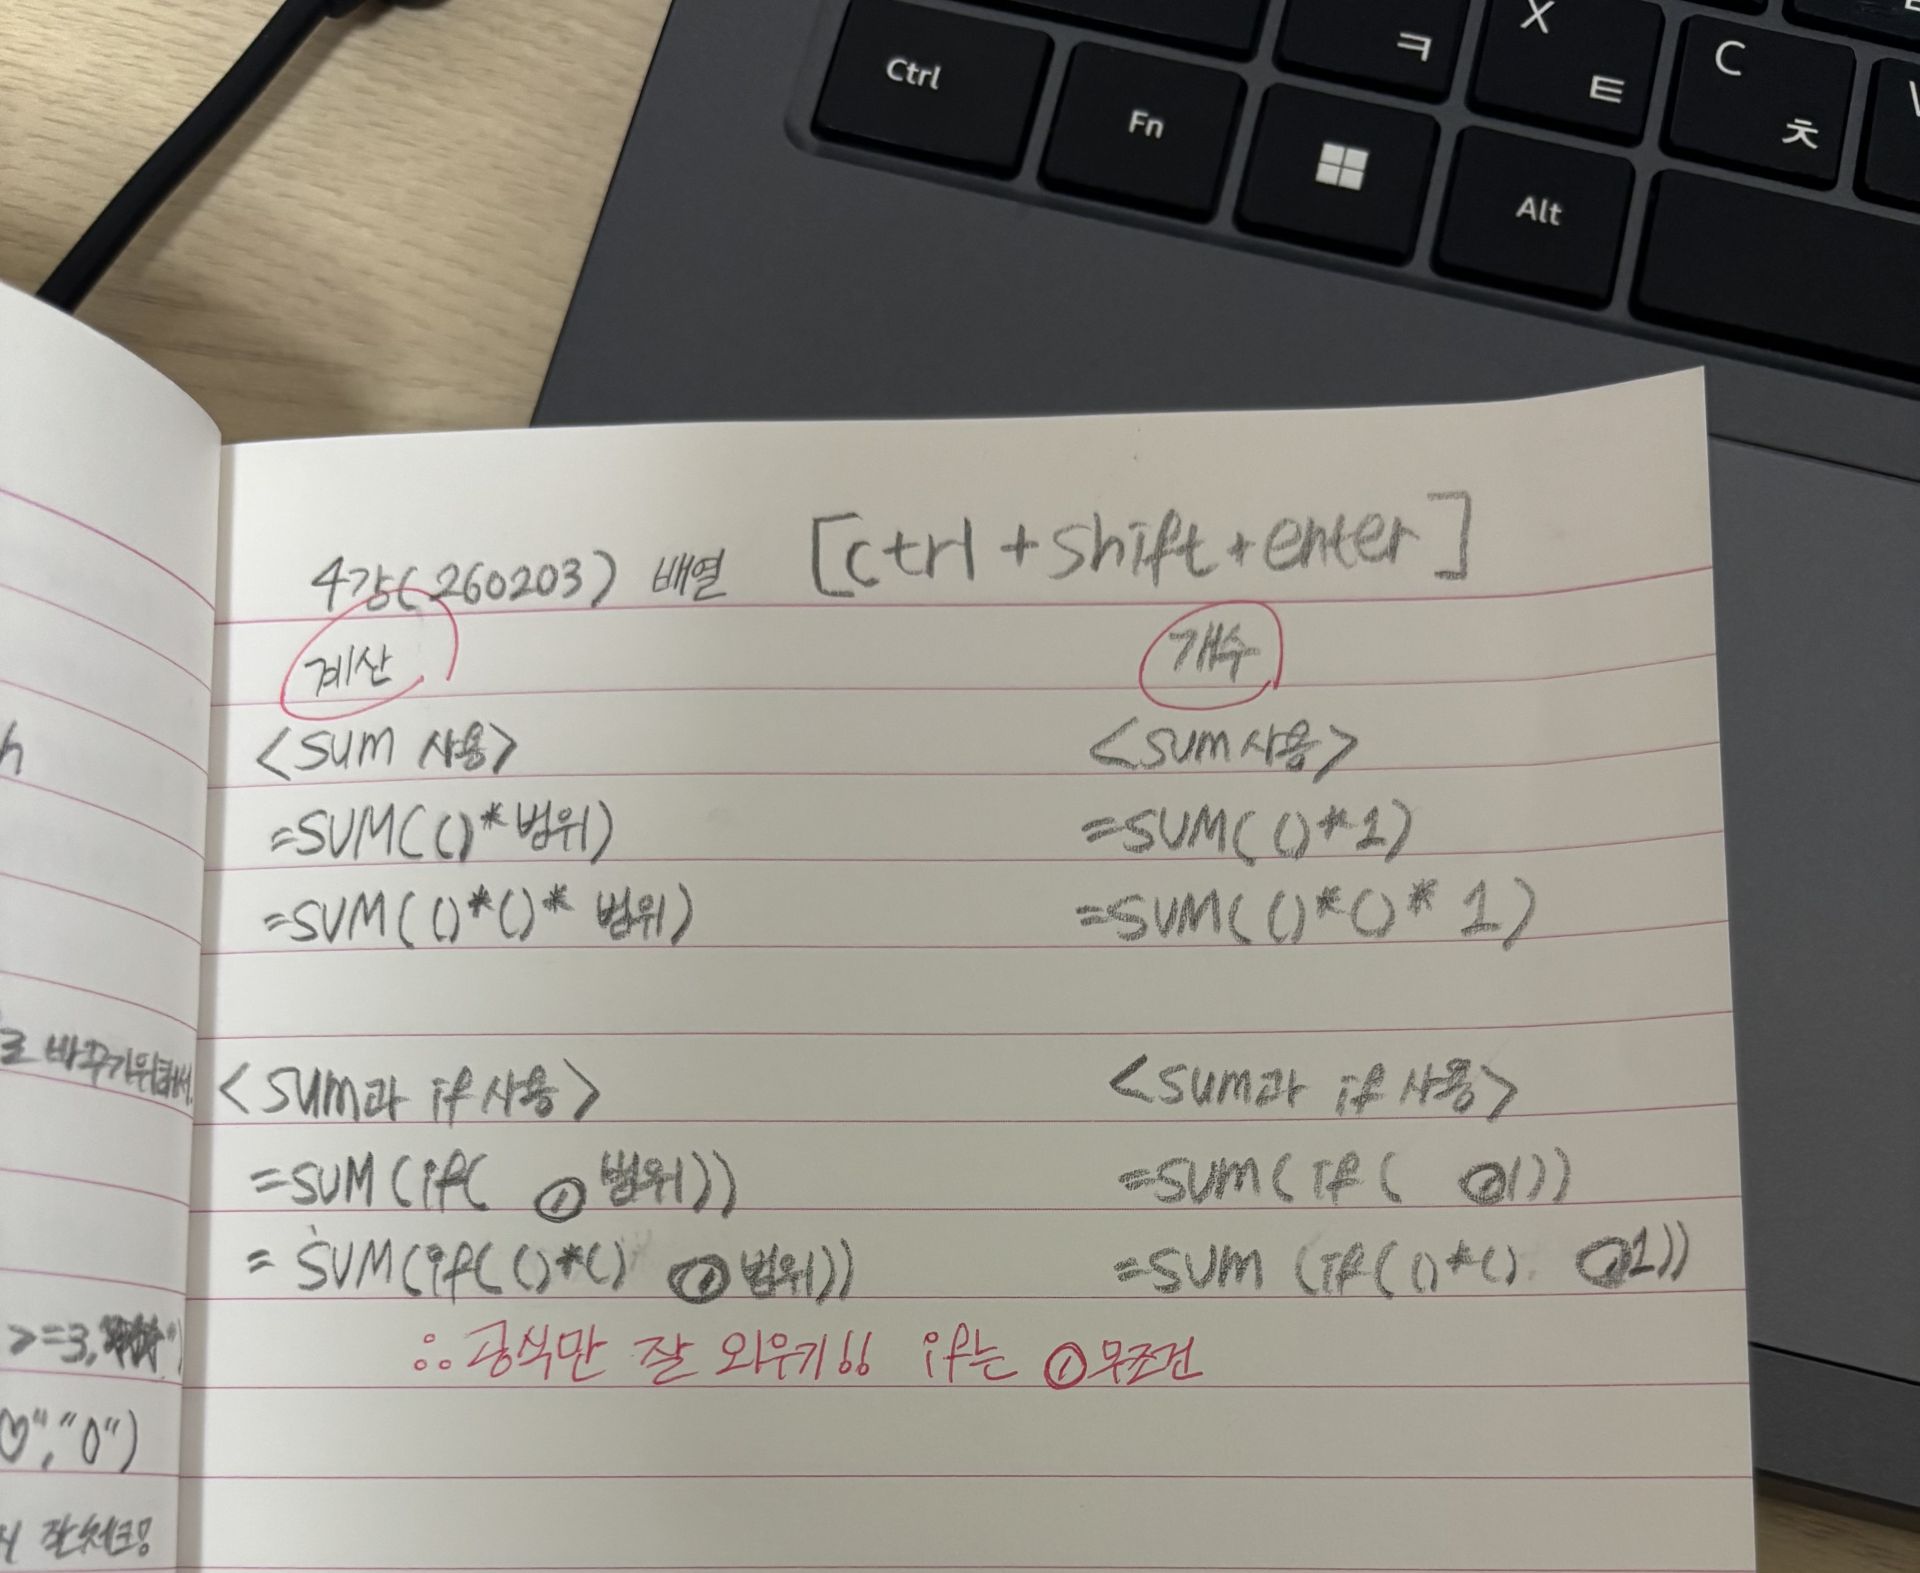 ㅋ
X
ㅌ
C
ㅊ
Ctrl
Fn
Alt
4강(260203) 배열 [ctrl+shift+enter]
계산 개수
<sum 사용> <sum사용>
=SUM(()*범위) =SUM(()*1)
=SUM(()*()* 범위) =SUM(()*()* 1)
<sum과 if사용> <sum과 if사용>
=SUM(if( , 범위)) =SUM(if( ,1))
=SUM(if(()*() , 범위)) =SUM(if(()*() ,1))
∴ 공식만 잘 외우기!! if는 , 무조건
h
로 바꾸기위해서
>=3,
♡","0")
잘체크!